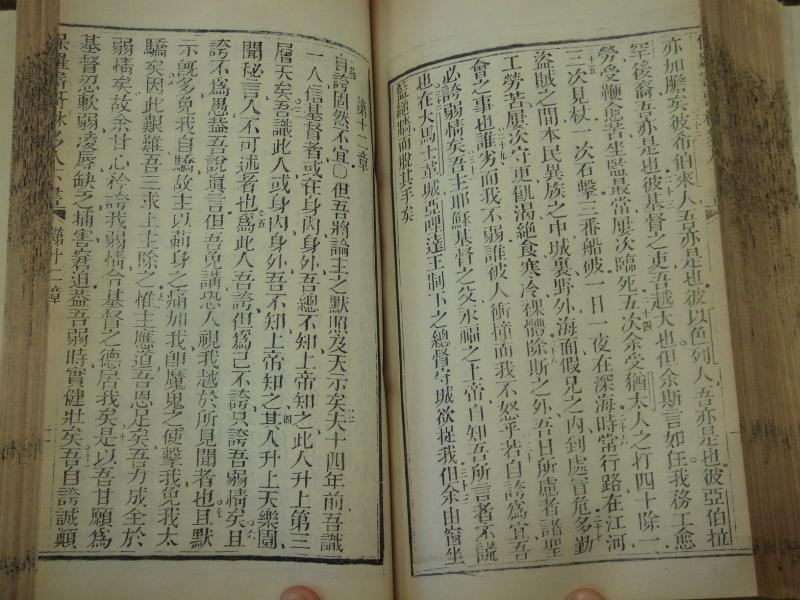 亦加膽矣彼希伯來人吾亦是也彼以色列人吾亦是也彼亞伯拉
罕後裔吾亦是也彼基督之吏吾越大也但余斯言如狂我務工愈
勞受鞭愈苦坐監最常屢次臨死五次余受猶太人之打四十除一
三次見杖一次石擊三番船破一日一夜在深海時常行路在江河
盜賊之間本民異族之中城裏野外海面假兄之內到處冒危多勤
工勞苦屢次守更飢渴絕食寒冷裸體除斯之外吾日所慮者諸聖
會之事也誰劣而我不弱誰被人衝撞而我不怒乎若自誇爲宜吾
必誇弱情矣吾主耶穌基督之父永福之上帝自知吾所言者不謊
也在大馬士革城亞哩達王制下之總督守城欲捉我但余由窗坐
籃縋牆而脫其手矣
第十二章
自誇固然不宜○但吾將論主之默照及天示矣夫十四年前吾識
一人信基督者或在身內身外吾總不知上帝知之此人升上第三
層天矣吾識此人或身內身外吾不知上帝知之其人升上天樂園
聞秘言人不可述者也爲此人吾誇但爲己不誇只誇吾弱情矣且
誇不爲愚蓋吾說眞言但吾免講恐人視我越於所見聞者也且默
示旣多免我自驕故主以荊身之痛加我卽魔鬼之使擊我免我太
驕矣因此艱難吾三求上主除之惟主應道吾恩足矣吾力成全於
弱情矣故余甘心矜誇我弱情令基督之德居我矣是以吾甘願爲
基督忍軟弱凌辱缺乏捕害窘迫蓋吾弱時實健壯矣吾自誇誠顚
第十二章